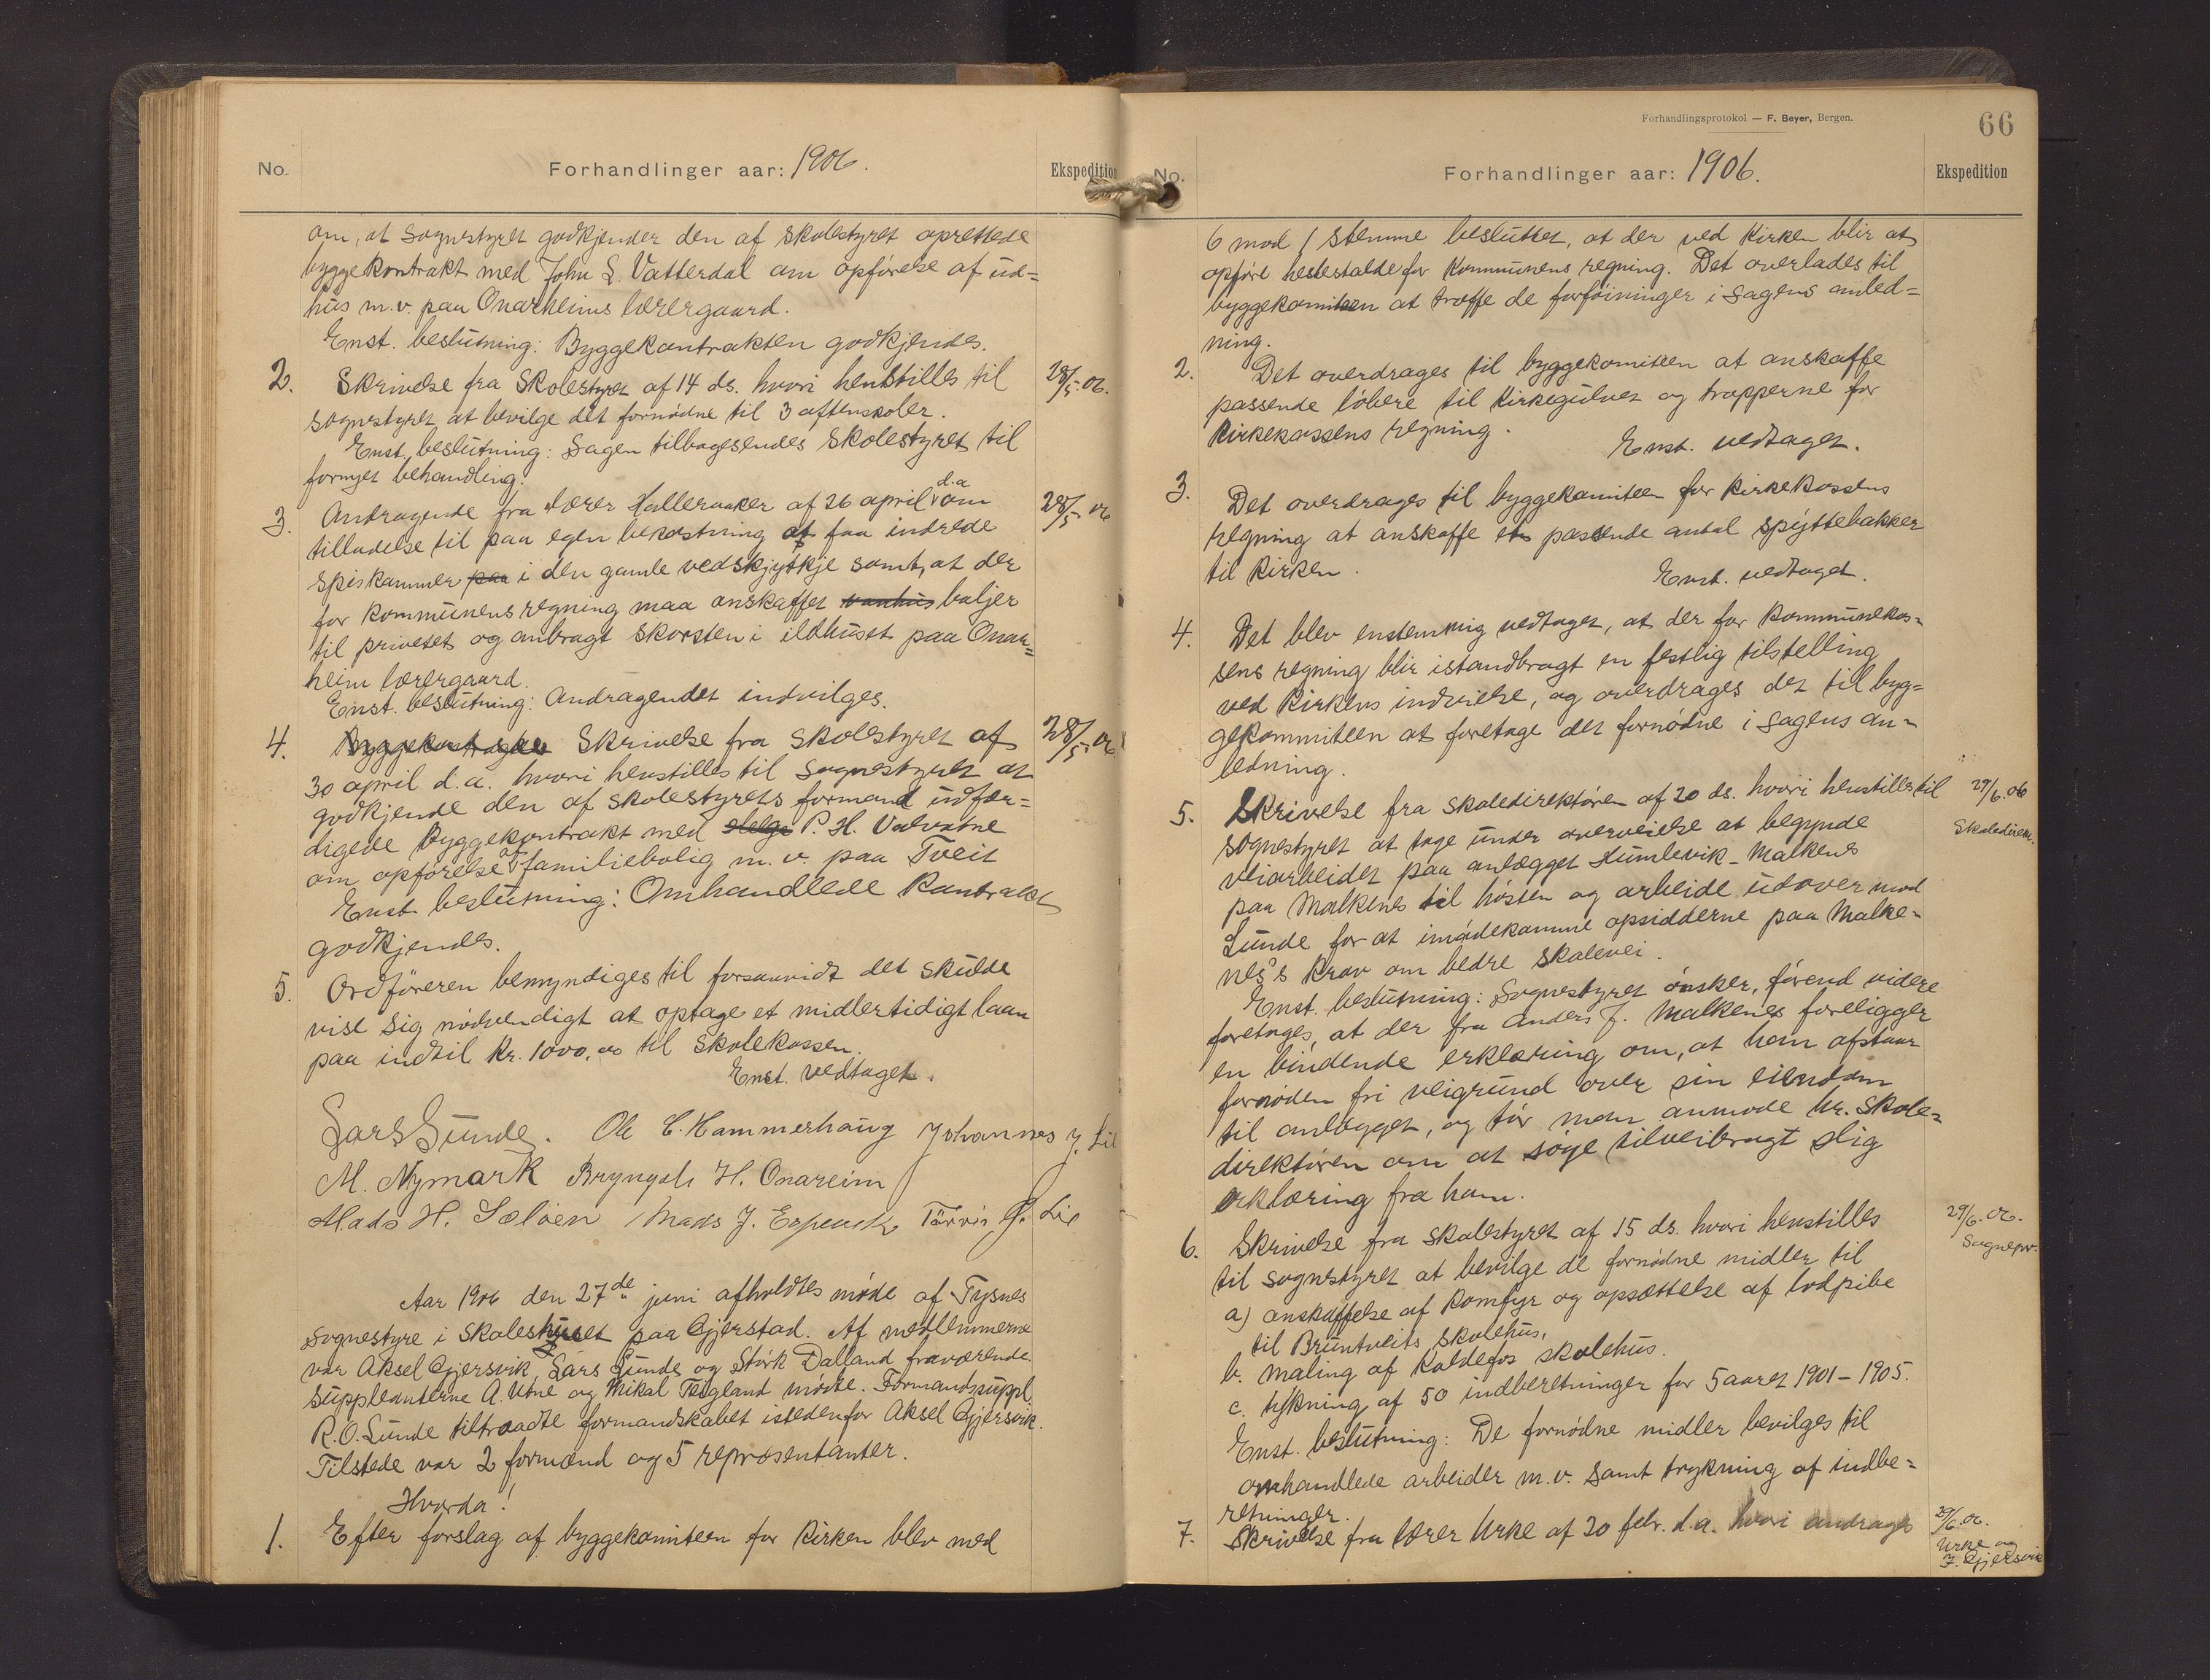 No. Forhandlinger aar: 1906. Ekspedition
om, at Sognestyret godkjender den af Skolestyret oprettede
byggekontrakt med John L. Vatterdal om opførelse af ud=
hus m.v. paa Onarheims lærergaard.
Enst. beslutning: Byggekontrakten godkjendes.
2. Skrivelse fra Skolestyret af 14 ds. hvori henstilles til 28/5-06.
sognestyret at bevilge det fornødne til 3 aftenskoler.
Enst. beslutning: Sagen tilbagesendes Skolestyret til
fornyet behandling.
3. Andragende fra lærer Halleraaker af 26 april d.a om 28/5-06
tilladelse til paa egen bekostning at faa indrede
spiskammer paa i den gamle vedskjytkje samt, at der
for kommunens regning maa anskaffes vanhus baljer
til privetet og anbragt skorsten i ildhuset paa Onar=
heim lærergaard.
Enst. beslutning: Andragendet indvilges.
4. Byggekontrakten Skrivelse fra Skolestyret af 28/5-06
30 april d.a. hvori henstilles til Sognestyret at
godkjende den af skolestyrets formand udfær=
digede Byggekontrakt med Helge P. H. Valvatne
om opførelse af familiebolig m.v. paa Tveit
Enst. beslutning: Omhandlede Kontrakt
godkjendes.
5. Ordføreren bemyndiges til forsaavidt det skulde
vise sig nødvendigt at optage et midlertidigt laan
paa indtil Kr. 1000,00 til Skolekassen.
Enst. vedtaget.
Lars Sunde. Ole E. Hammerhaug Johannes J. Lie
M. Nymark Brynyels H. Onareim
Mads H. Sæløen Mads J. Espevik Tørris G. Lie
Aar 1906 den 27de juni afholdtes møde af Tysnes
Sognestyre i Skoleshuset paa Gjerstad. Af medlemmerne
var Aksel Gjersvik, Lars Sunde og Størk Dalland fraværende.
Suppleanterne A. Utne og Mikal Teigland mødte. Formandssuppl.
R.O. Sunde tiltraadte formandskabet istedenfor Aksel Gjersvik.
Tilstede var 2 formænd og 5 repræsentanter.
Hvorda!
1. Efter forslag af byggekomiteen for Kirken blev med
Forhandlingsprotokol — F. Beyer, Bergen. 66
No. Forhandlinger aar: 1906. Ekspedition
6 mod 1 stemme besluttet, at der ved Kirken blir at
opføre hestestalde for Kommunens regning. Det overlades til
byggekomiteen at træffe de forføininger i sagens anled=
ning.
2. Det overdrages til byggekomiteen at anskaffe
passende løbere til Kirkegulvet og trapperne for
Kirkekassens regning.
Enst. vedtaget.
3. Det overdrages til byggekomiteen for Kirkekassens
regning at anskaffe et passende antal spyttebakker
til Kirken.
Enst. vedtaget.
4. Det blev enstemmig vedtaget, at der for Kommunekas=
sens regning blir istandbragt en festlig tilstelling
ved Kirkens indvielse, og overdrages det til byg=
gekommiteen at foretage det fornødne i sagens an=
ledning.
5. Skrivelse fra skoledirektøren af 20 ds. hvori henstilles til 29/6.06
sognestyret at tage under overveielse at begynde Skoledirekt.
veiarbeidet paa anlægget Humlevik-Malkenes
paa Malkenes til høsten og arbeide udover mod
Sunde for at imødekomme opsidderne paa Malke=
nes's Krav om bedre skolevei.
Enst. beslutning: Sognestyret ønsker, førend videre
foretages, at der fra Anders J. Malkenes foreligger
en bindende erklæring om, at han afstaar
fornøden fri veigrund over sin eiendom
til anlægget, og tør man anmode hr. Skole=
direktøren om at søge tilveibragt slig
erklæring fra ham.
6. Skrivelse fra skolestyret af 15 ds. hvori henstilles 29/6.06.
til sognestyret at bevilge de fornødne midler til Sognepr.
a) anskaffelse af Komfyr og opsættelse af lodpibe
til Bruntveits skolehus,
b. maling af Kaldefos skolehus.
c. trykning af 50 indberetninger for 5aaret 1901-1905.
Enst. beslutning: De fornødne midler bevilges til
omhandlede arbeider m.v. samt trykning af indbe=
retninger.
7. Skrivelse fra lærer Urke af 20 febr. d.a. hvori andrages 29/6.06.
Urke og
J. Gjersvik